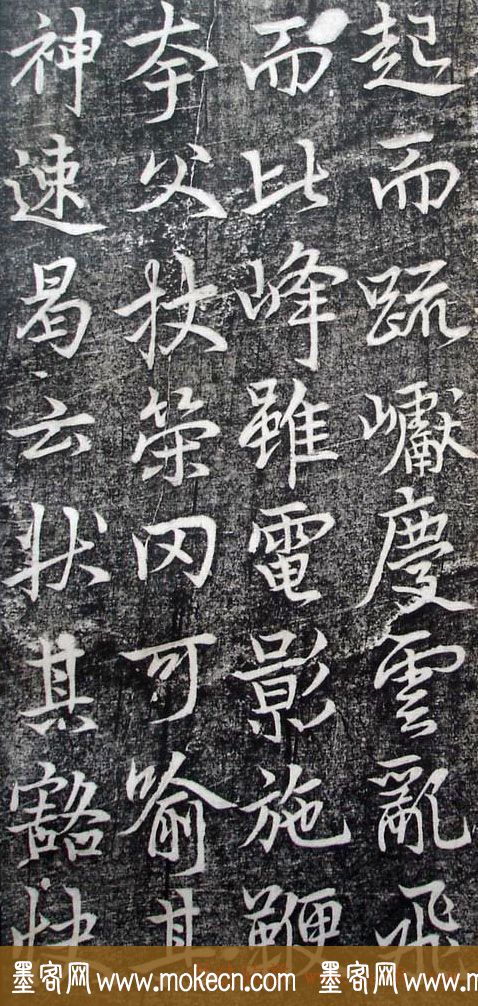 起而疏巘慶雲亂飛
而比峰雖電影施鞭
夸父杖策罔可喻其
神速曷云狀其豁快
墨客网 www.mokecn.com 墨客网 www.mokecn.com